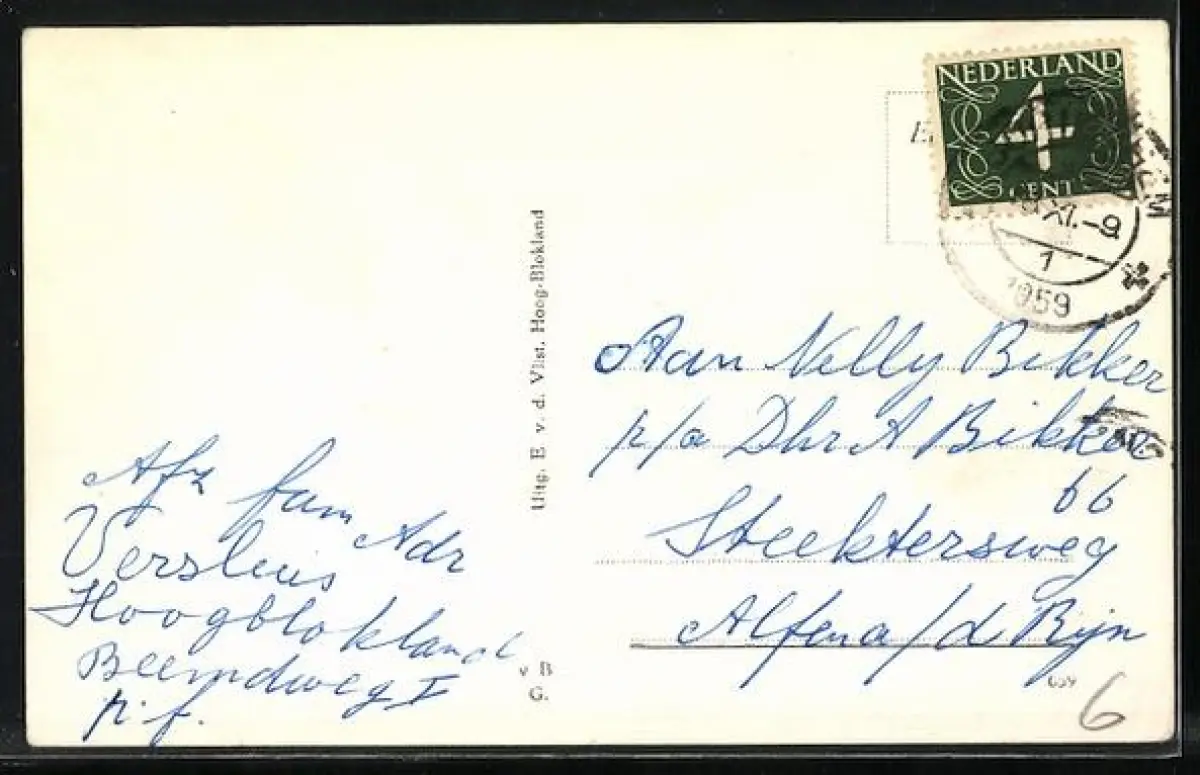 NEDERLAND
4
CENT
XI.-9
1
1959
Uitg. E. v. d. Vlist. Hoog-Blokland
Aan Nelly Bikker
p/a Dhr A Bikker
66
Steektersweg
Alfena/d Rijn
Afz fam Adr
Versluis
Hoogblokland
Beemdweg I
p.f.
v B
G.
659
6